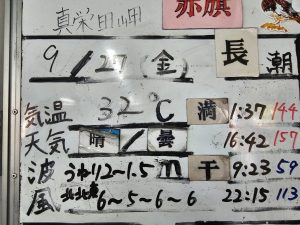 真栄田岬 赤旗
9/27(金) 長潮
気温 32℃ 満 1:37 144
天気 晴/曇 16:42 157
波 うねり2~1.5m 干 9:23 59
風 北北東 6~5~6~6 22:15 113